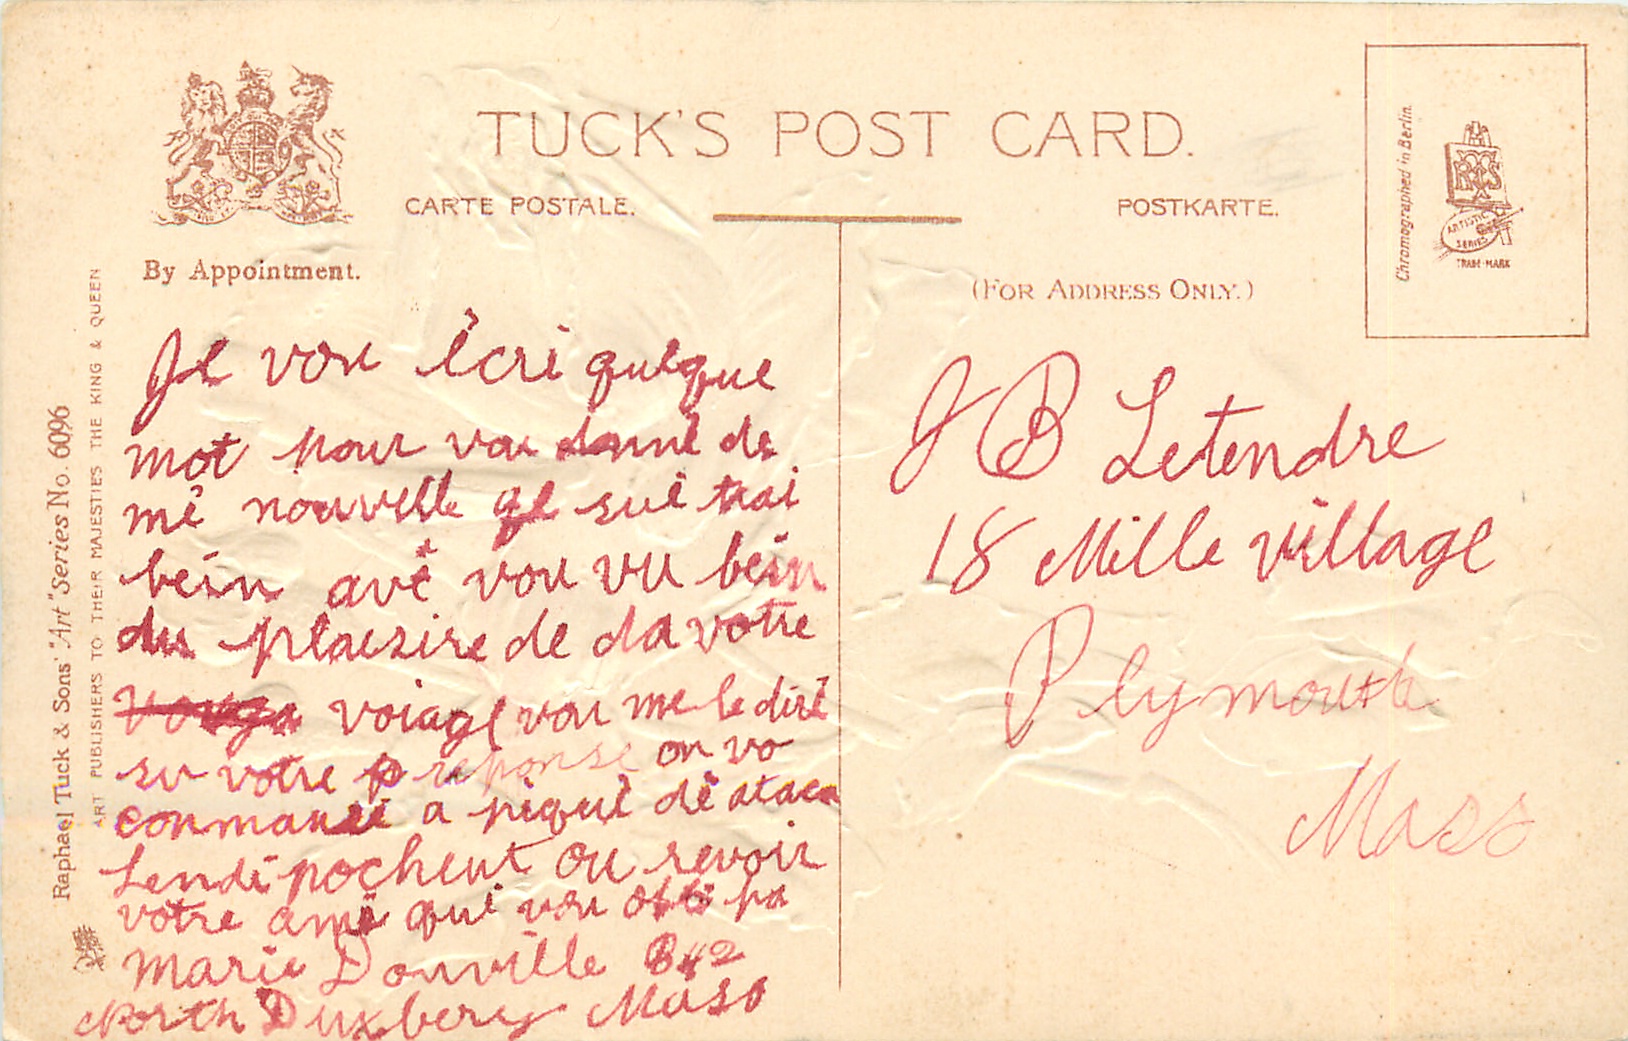 TUCK'S POST CARD.
CARTE POSTALE.
POSTKARTE.
By Appointment.
(FOR ADDRESS ONLY.)
Chromographed in Berlin.
RTS
ARTISTIC
SERIES
TRADE-MARK
Raphael Tuck & Sons' "Art" Series No. 6096
ART PUBLISHERS TO THEIR MAJESTIES THE KING & QUEEN
Je vou écri quelque
mot pour vou donné de
mé nouvelle je sui trai
bein avé vou vu bein
du plaisire de da votre
voiage vou me le diré
su votre reponse on vo
conmancé a piqué dé ataca
Lendi pochent ou revoir
votre amé qui vou pa
Marie Donville B42
North Duxbery Mass
J B Letendre
18 Mille village
Plymouth
Mass